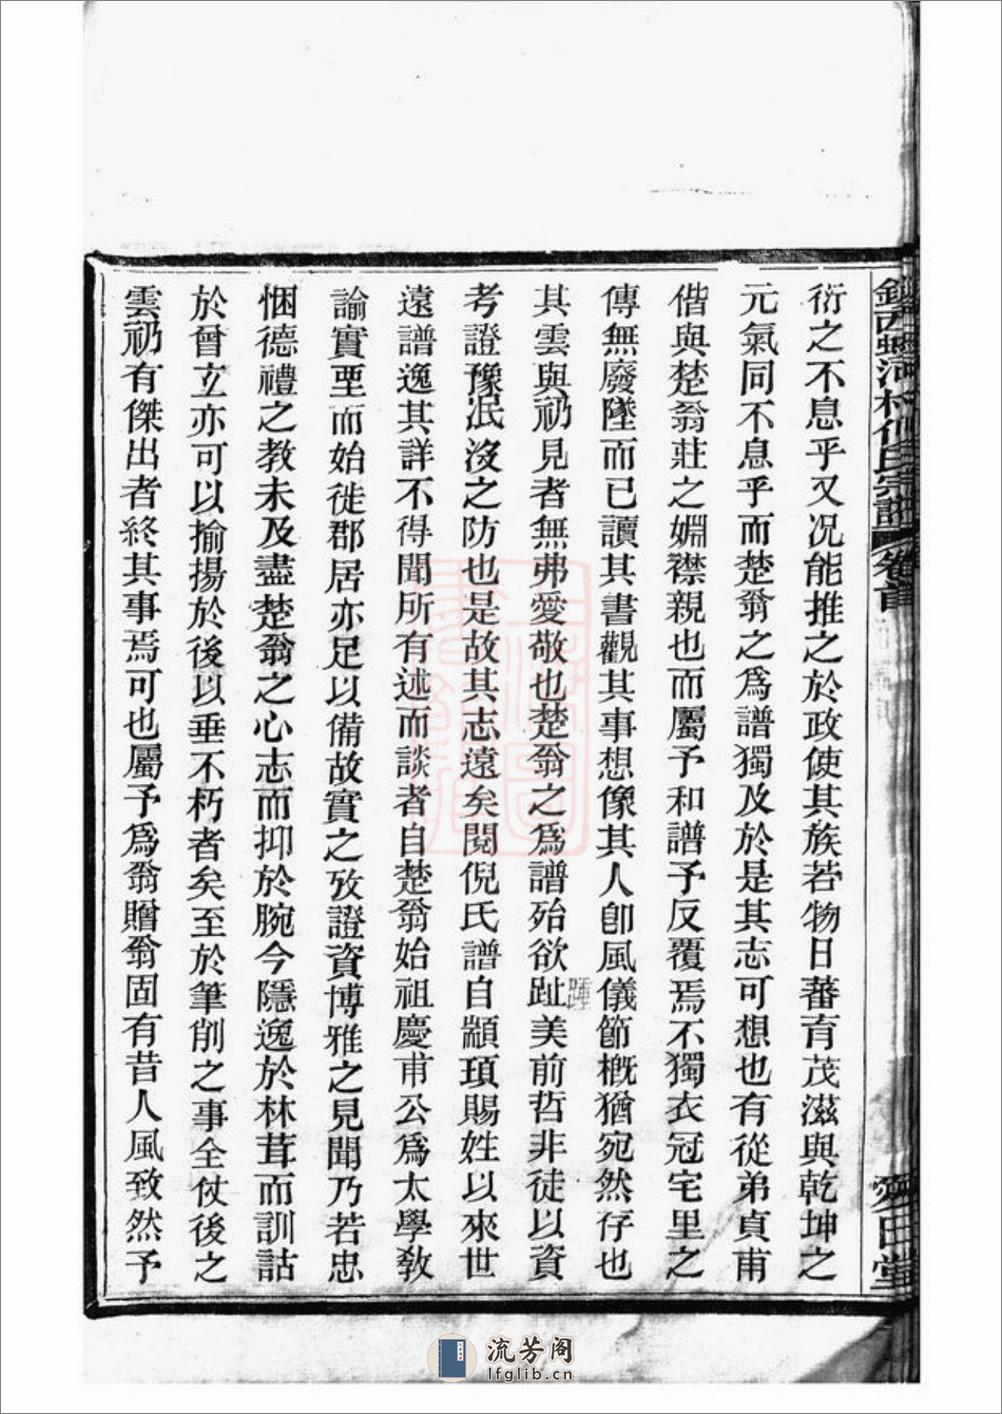 衍之不息乎又况能推之於政使其族若物日蕃育茂滋與乾坤之
元氣同不息乎而楚翁之爲譜獨及於是其志可想也有從弟貞甫
偕與楚翁莊之婣襟親也而屬予和譜予反覆焉不獨衣冠宅里之
傳無廢墜而已讀其書觀其事想像其人卽風儀節槪猶宛然存也
其雲與礽見者無弗愛敬也楚翁之爲譜殆欲趾美前哲非徒以資
踵
考證豫泯沒之防也是故其志遠矣閱倪氏譜自顓頊賜姓以來世
遠譜逸其詳不得聞所有述而談者自楚翁始祖慶甫公爲太學敎
諭實垔而始徙郡居亦足以備故實之攷證資博雅之見聞乃若忠
悃德禮之教未及盡楚翁之心志而抑於腕今隱逸於林茸而訓詁
於曾立亦可以揄揚於後以垂不朽者矣至於筆削之事全仗後之
雲礽有傑出者終其事焉可也屬予爲翁贈翁固有昔人風致然予
卷首
愛日堂
流芳阁
lfglib.cn